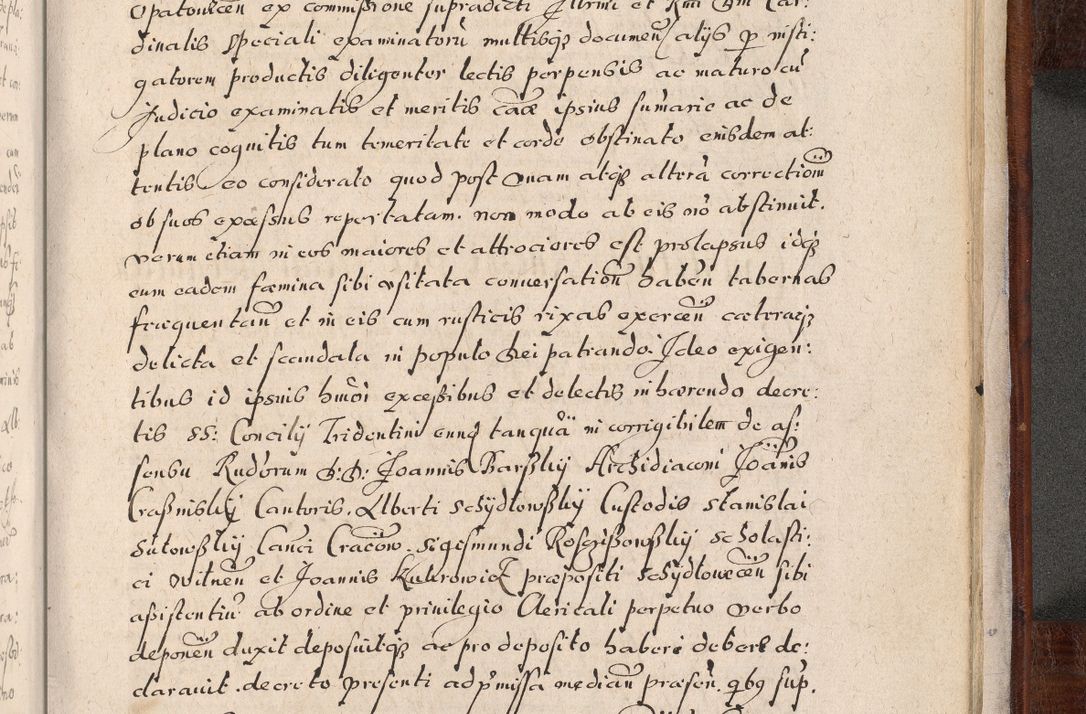 Opatouiceñ ex commißione supradicti Illrmi et Rmi Dni Car:
dinalis speciali examinatorũ multisqz documen alijs p insti:
gatorem productis diligenter lectis perpensis ac maturo cũ
Judicio examinatis et meritis caãe ipsius sumarie ac de
plano cognitis tum temeritate et corde obstinato eiusdem at:
tentis eo considerato quod post unam atqz alterã correctioñ
ob suos excessus reportatam. non modo ab eis nõ abstinuit.
verum etiam in eos maiores et attrociores est prolapsus idqz
cum eadem fæmina sibi usitata conuersatioñ habeñ tabernas
fræquentañ et in eis cum rusticis rixas exerceñ cæteraqz
delicta et scandala in populo Dei patrando. Ideo exigen:
tibus id ipsius hmõi excessibus et delectis inhærendo decre:
tis SS: Concilij Tridentini eunq tanquã incorrigibilem de as:
sensu Rndorum D:D: Joannis Barßkij Archidiaconi Joãnis
Craßinskij Cantoris. Alberti Schÿdlowßkij Custodis Stanislai
Sułowßkij Canci Cracoũ. Sigismundi Rosziszowßkij Scholasti:
ci Vilneñ et Joannis præpositi Schÿdlouiceñ sibi
aßistentiũ ab ordine et priuilegio Clericali perpetuo verbo
deponeñ duxit deposuitqz ac pro deposito haberi debere de:
clarauit. decreto præsenti ad pmissa mediañ præsen. qbq sup.